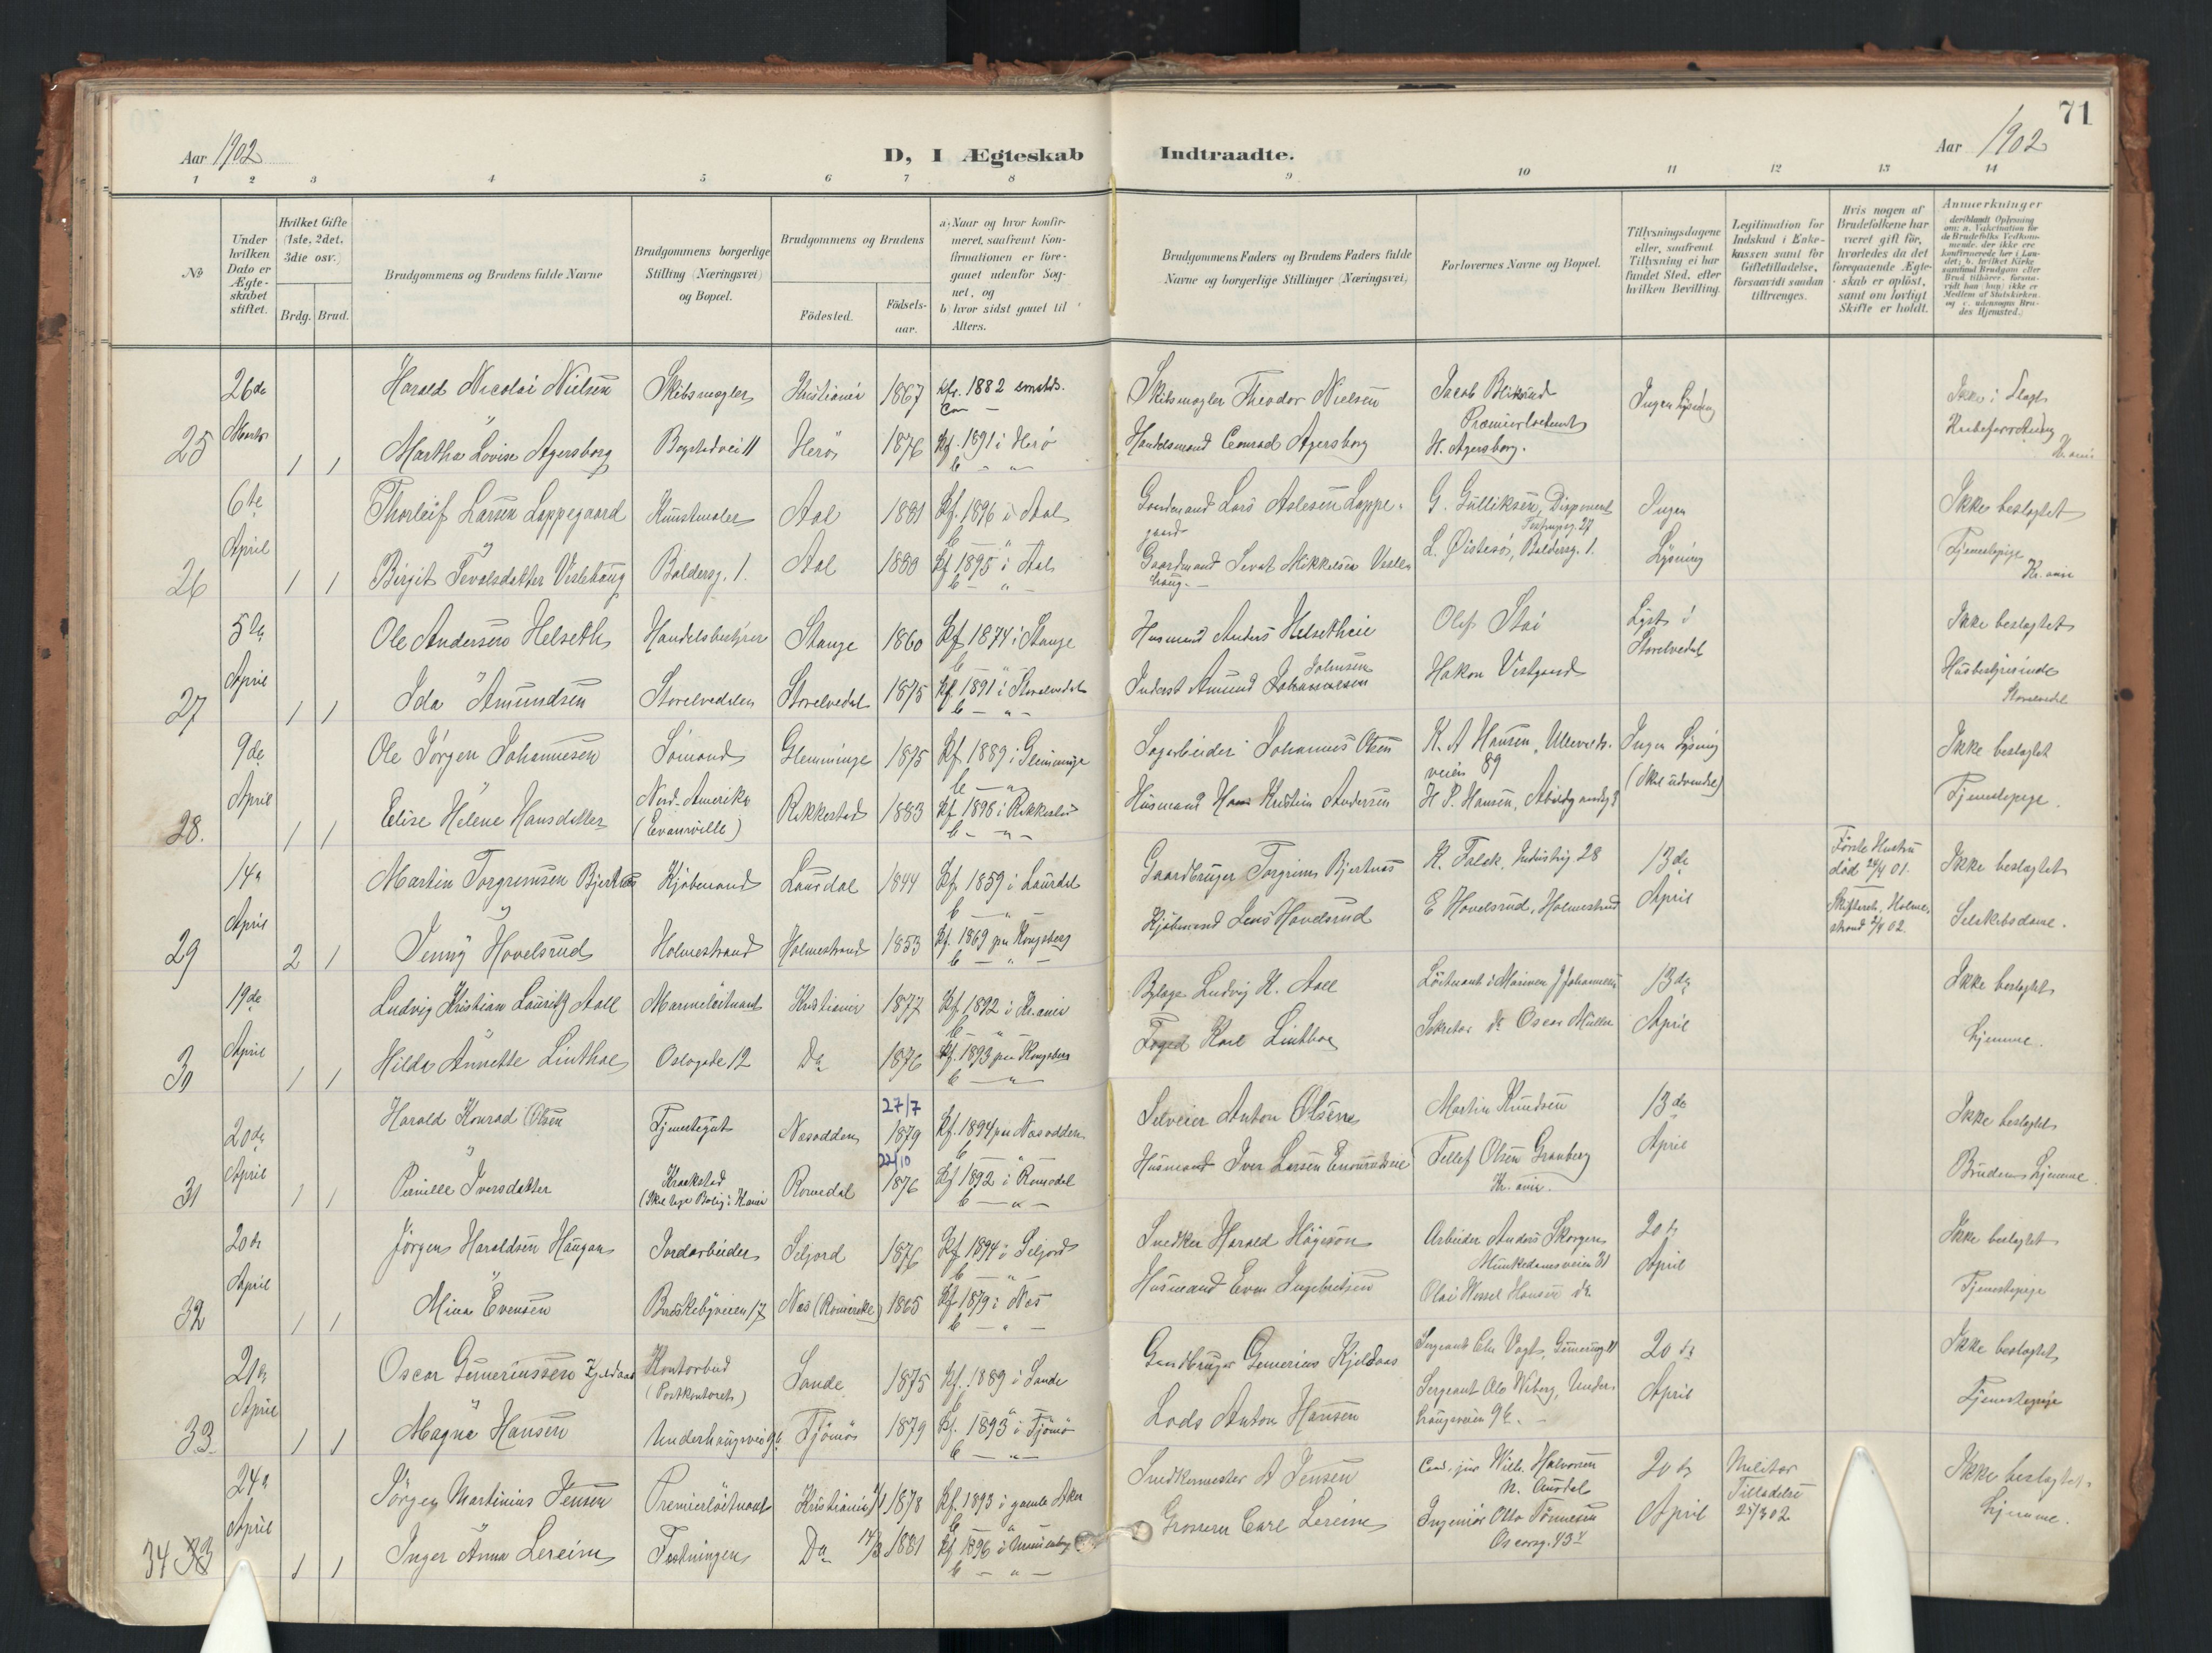 71
Aar 1902
D, I Ægteskab Indtraadte.
Aar 1902
1 2 3 4 5 6 7 8 9 10 11 12 13 14
№
Under hvilken Dato er Ægteskabet stiftet.
Hvilket Gifte (1ste, 2det, 3die osv.)
Brdg. Brud.
Brudgommens og Brudens fulde Navne
Brudgommens borgerlige Stilling (Næringsvei) og Bopæl.
Brudgommens og Brudens
Födested.
Födsels-aar.
a) Naar og hvor konfirmeret, saafremt Konfirmationen er foregaaet udenfor Sognet, og
b) hvor sidst gaaet til Alters.
Brudgommens Faders og Brudens Faders fulde Navne og borgerlige Stillinger (Næringsvei)
Forlovernes Navne og Bopæl.
Tillysningsdagene eller, saafremt Tillysning ei har fundet Sted, efter hvilken Bevilling.
Legitimation for Indskud i Enkekassen samt for Giftetilladelse, forsaavidt saadan tiltrænges.
Hvis nogen af Brudefolkene har været gift för, hvorledes da det foregaaende Ægteskab er oplöst, samt om lovligt Skifte er holdt.
Anmerkninger
25 26de Marts 1 1
Harald Nicolai Nielsen Skibsmægler Kristiania 1867 Kfr. 1882
Martha Lovise Agersborg Herö 1876 Kf. 1891 i Herö
Skibsmægler Theodor Nielsen
Handelsmand Conrad Agersborg
Premierløitnant
H. Agersborg.
Ingen Lysning
Ikke i Slægt
26 6te April 1 1
Thorleif Larsen Loppegaard Kunstmaler Aal 1881 Kf. 1896 i Aal
og
Birgit Sevalsdatter Veslehaug Baldersg. 1. Aal 1880 Kf 1895 i Aal
Gaardmand Lars Aslesen Loppegaard
Gaardmand Sevat Mikkelsen Veslehaug.
G. Gulliksen, Disponent
L. Øistesö, Baldersg. 1.
Ingen Lysning
Ikke beslægtet
Tjenestepige
Kr.ania
27 5te April 1 1
Ole Andersen Helseth Handelsbestyrer Stange 1860 Kf 1874 i Stange
Ida Amundsen Storelvedalen Storelvedal 1875 Kf. 1891 i Storelvedal
Husmand Anders Helsetheie
Inderst Amund Johannesen Johnsen
Olaf Stai
Hakon Vestgaard
Lyst i Storelvedal
Ikke beslægtet
Husbestyrerinde
Storelvedal
28. 9de April 1 1
Ole Jörgen Johannesen Sømand Glemminge 1875 Kf 1889 i Glemminge
Elise Helene Hansdatter Nord-Amerika (Evansville) Rakkestad 1883 Kf 1898 i Rakkestad
Sagarbeider Johannes Olsen
Husmand Hans Kristian Andersen
K. A Hansen, Ullevoldsveien 89
H P. Hansen,
Ingen Lysning
(Skal udvandre)
Ikke beslægtet
Tjenestepige.
29 14de April 2 1
Martin Torgrimsen Bjertnæs Kjöbmand Laurdal 1844 Kf 1859 i Laurdal
og
Jenny Hovelsrud Holmestrand Holmestrand 1853 Kf. 1869 paa Kongsberg
Gaardbruger Torgrim Bjertnæs
Kjöbmand Jens Hovelsrud
K. Falck, Industrig 28
E Hovelsrud, Holmestrand
13de April
Første Hustru død 24/4 01.
Skifteret, Holmestrand 2/4 02.
Ikke beslægtet
Selskabsdame.
30 19de April 1 1
Ludvig Kristian Lauritz Aall Marineløitnant Kristiania 1877 Kf. 1892 i Kr.ania
Hilda Annette Linthoe Oslogade 12 Do 1876 Kf. 1893 paa Kongsberg
Ludvig K. Aall
Foged Karl Linthoe
Løitnant i Marinen J Johannesen
Sekretær Dr. Oscar Müller
13de April
Ikke beslægtet
Hjemme.
31 20de April 1 1
Harald Konrad Olsen Tjenestegut Næsodden 27/7 1879 Kf. 1894 paa Næsodden
Pernille Iversdatter Kraakstad (Skal tage Bolig i Kr.ania Romedal 22/10 1876 Kf 1892 i Romedal
Selveier Anton Olsen
Husmand Iver Larsen
Martin Knudsen
Tellef Olsen Granberg
Kr.ania.
13de April
Ikke beslægtet
Brudens Hjemme.
32 20de April 1 1
Jörgen Haraldsen Haugan Jordarbeider Seljord 1876 Kf 1894 i Seljord
Mina Evensen Briskebyveien 17 Næs (Romerike) 1865 Kf 1879 i Næs
Snedker Harald
Husmand Even Ingebretsen
Arbeider Anders Skorgen
Munkedamsveien 31
Olai Wessel Hansen do.
20de April
Ikke beslægtet
Tjenestepige
33 21de April 1 1
Oscar Gumeriussen Kjeldaas Kontorbud (Postkontoret) Sande 1875 Kf. 1889 i Sande
Magna Hansen Underhaugsvei 9b. Tjömö 1879 Kf. 1893 i Tjömö
Gaardbruger Gumerius Kjeldaas
Lods Anton Hansen
Sergeant Chr Vogt,
Sergeant Ole Wiberg, Underhaugsveien 9b.
20de April
Ikke beslægtet
Tjenestepige
34 33 24de April 1 1
Jörgen Martinius Jensen Premierløitnant Kristiania 1878 Kf. 1893 i gamle Aker
Inger Anna Lereim Festningen Do 14/3 1881 Kf 1896 i
Snedkermester A Jensen
Grosserer Carl Lereim
Cand. jur Wilh. Halvorsen
N. Aurdal
Ingeniør Otto Tönnesen
Oscarsg. 43
20de April
Militær Tilladelse 25/3 02
Ikke beslægtet.
Hjemme.